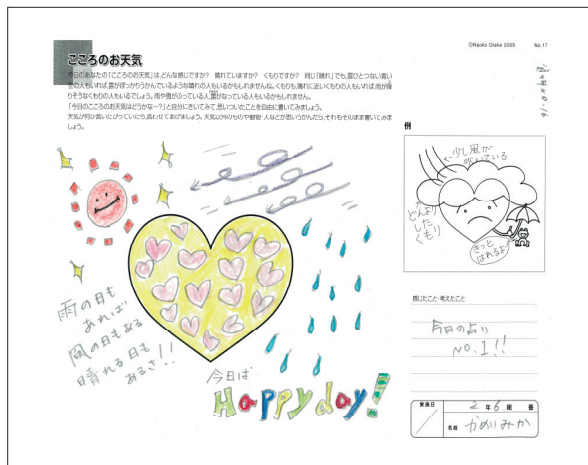 ©Naoko Otake 2005 No.17
こころのお天気
今日のあなたの「こころのお天気」は、どんな感じですか? 晴れていますか? くもりですか? 同じ「晴れ」でも、雲ひとつない青い
空の人もいれば、雲がぽっかりうかんでいるような晴れの人もいるかもしれません。くもりも、晴れに近いくもりの人もいれば、雨が降
りそうなくもりの人もいるでしょう。雨や雪がふっている人、雷がなっている人もいるかもしれません。
「今日のこころのお天気はどうかな~?」と自分にきいてみて、思いついたことを自由に書いてみましょう。
天気が何か言いたがっていたら、言わせてあげましょう。天気以外のものや動物・人などが思いうかんだら、それもそのまま書いてみま
しょう。
例
←少し風が
吹いている
どんより
した
くもり
きっと
はれるよ
雨の日も
あれば
風の日もある
晴れる日も
あるさ!!
今日は
Happy day!
感じたこと・考えたこと
今日の占い
NO.1!!
実施日
2年6組 番
名前 かめいみか